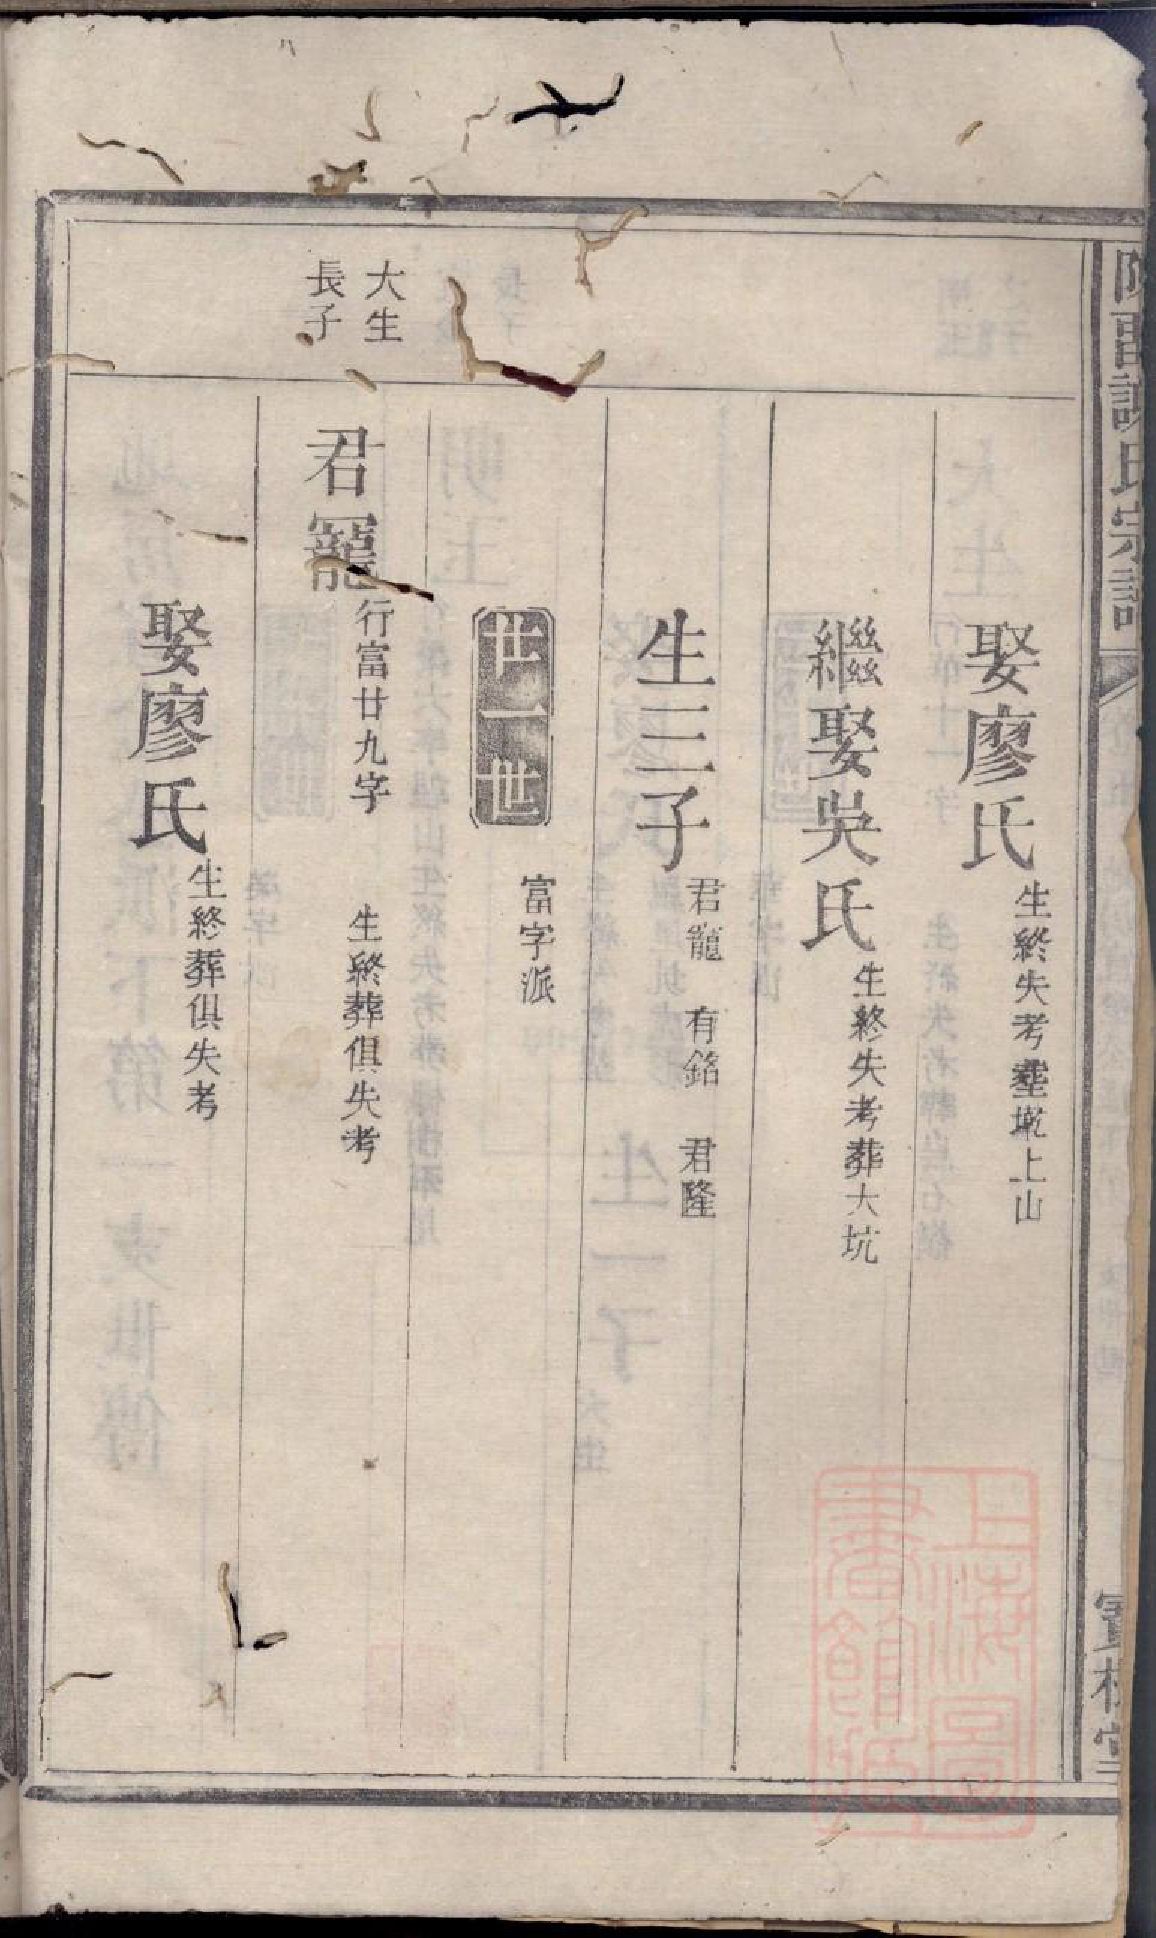 娶廖氏 生終失考塟墘上山
繼娶吳氏 生終失考葬大坑
生三子 君寵 有銘 君隆
世一世 富字派
大生
長子
君寵 行富廿九字 生終葬俱失考
娶廖氏 生終葬俱失考
上海圖
書館藏